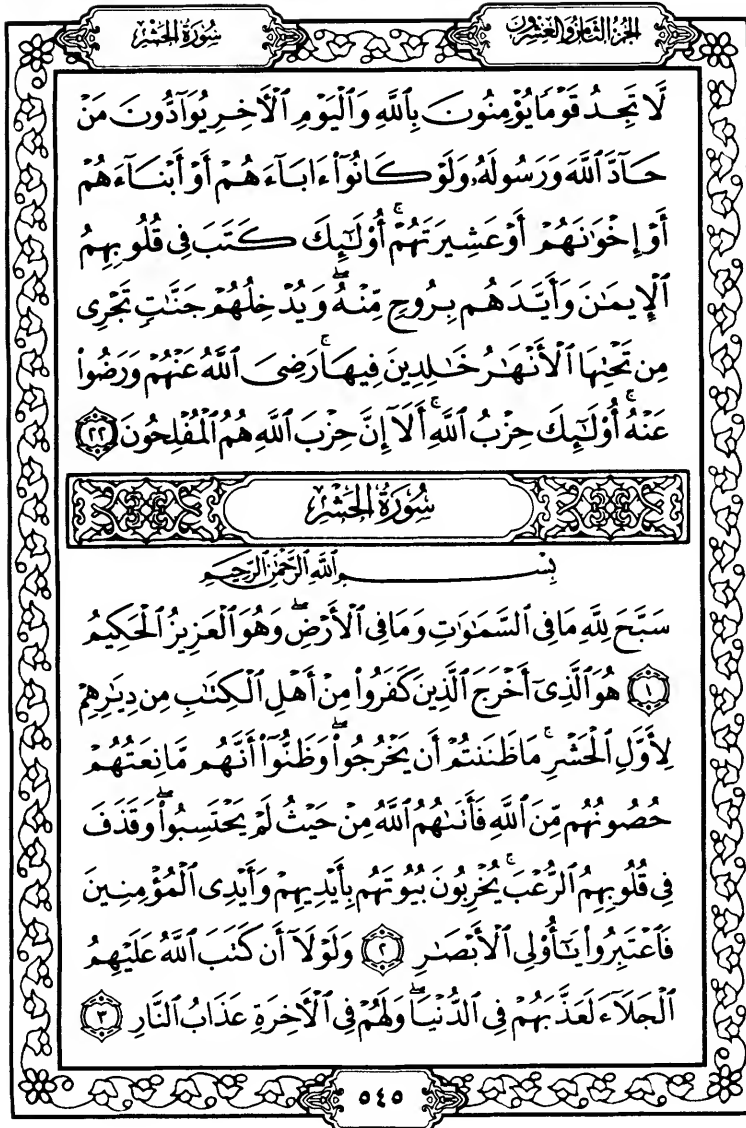 الجزء الثامن والعشرون
سُورَةُ الحَشْرِ
لَّا تَجِدُ قَوْمًا يُؤْمِنُونَ بِٱللَّهِ وَٱلْيَوْمِ ٱلْأَخِرِ يُوَآدُّونَ مَنْ
حَآدَّ ٱللَّهَ وَرَسُولَهُۥ وَلَوْ كَانُوٓا۟ ءَابَآءَهُمْ أَوْ أَبْنَآءَهُمْ
أَوْ إِخْوَٰنَهُمْ أَوْ عَشِيرَتَهُمْ ۚ أُو۟لَٰٓئِكَ كَتَبَ فِى قُلُوبِهِمُ
ٱلْإِيمَٰنَ وَأَيَّدَهُم بِرُوحٍ مِّنْهُ ۖ وَيُدْخِلُهُمْ جَنَّٰتٍ تَجْرِى
مِن تَحْتِهَا ٱلْأَنْهَٰرُ خَٰلِدِينَ فِيهَا ۚ رَضِىَ ٱللَّهُ عَنْهُمْ وَرَضُوا۟
عَنْهُ ۚ أُو۟لَٰٓئِكَ حِزْبُ ٱللَّهِ ۚ أَلَآ إِنَّ حِزْبَ ٱللَّهِ هُمُ ٱلْمُفْلِحُونَ ٢٢
سُورَةُ الحَشْرِ
بِسْمِ ٱللَّهِ ٱلرَّحْمَٰنِ ٱلرَّحِيمِ
سَبَّحَ لِلَّهِ مَا فِى ٱلسَّمَٰوَٰتِ وَمَا فِى ٱلْأَرْضِ ۖ وَهُوَ ٱلْعَزِيزُ ٱلْحَكِيمُ
١ هُوَ ٱلَّذِىٓ أَخْرَجَ ٱلَّذِينَ كَفَرُوا۟ مِنْ أَهْلِ ٱلْكِتَٰبِ مِن دِيَٰرِهِمْ
لِأَوَّلِ ٱلْحَشْرِ ۚ مَا ظَنَنتُمْ أَن يَخْرُجُوا۟ ۖ وَظَنُّوٓا۟ أَنَّهُم مَّانِعَتُهُمْ
حُصُونُهُم مِّنَ ٱللَّهِ فَأَتَىٰهُمُ ٱللَّهُ مِنْ حَيْثُ لَمْ يَحْتَسِبُوا۟ ۖ وَقَذَفَ
فِى قُلُوبِهِمُ ٱلرُّعْبَ ۚ يُخْرِبُونَ بُيُوتَهُم بِأَيْدِيهِمْ وَأَيْدِى ٱلْمُؤْمِنِينَ
فَٱعْتَبِرُوا۟ يَٰٓأُو۟لِى ٱلْأَبْصَٰرِ ٢ وَلَوْلَآ أَن كَتَبَ ٱللَّهُ عَلَيْهِمُ
ٱلْجَلَآءَ لَعَذَّبَهُمْ فِى ٱلدُّنْيَا ۖ وَلَهُمْ فِى ٱلْأَخِرَةِ عَذَابُ ٱلنَّارِ ٣
٥٤٥